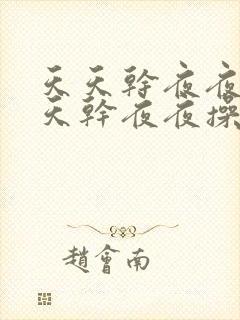 天天幹夜夜
天幹夜夜操
趙會南